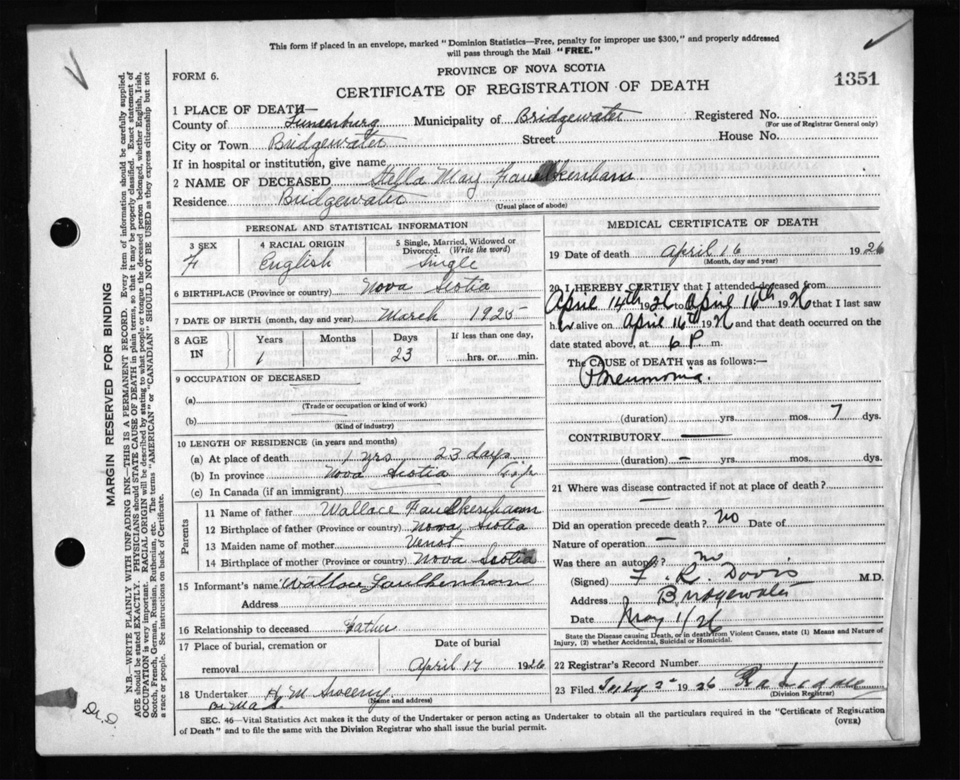 This form if placed in an envelope, marked "Dominion Statistics—Free, penalty for improper use $300," and properly addressed
will pass through the Mail "FREE."
FORM 6.
PROVINCE OF NOVA SCOTIA
CERTIFICATE OF REGISTRATION OF DEATH
1351
1 PLACE OF DEATH—
County of Lunenburg Municipality of Bridgewater Registered No.
(For use of Registrar General only)
City or Town Bridgewater Street House No.
If in hospital or institution, give name
2 NAME OF DECEASED Stella May Faulkenham
Residence Bridgewater
(Usual place of abode)
PERSONAL AND STATISTICAL INFORMATION
3 SEX 4 RACIAL ORIGIN 5 Single, Married, Widowed or Divorced. (Write the word)
F English Single
6 BIRTHPLACE (Province or country) Nova Scotia
7 DATE OF BIRTH (month, day and year) March 1925
8 AGE IN Years Months Days If less than one day,
1 23 hrs. or min.
9 OCCUPATION OF DECEASED
(a)
(Trade or occupation or kind of work)
(b)
(Kind of industry)
10 LENGTH OF RESIDENCE (in years and months)
(a) At place of death 1 yrs 23 days
(b) In province Nova Scotia Life
(c) In Canada (if an immigrant)
Parents
11 Name of father Wallace Faulkenham
12 Birthplace of father (Province or country) Nova Scotia
13 Maiden name of mother Venot
14 Birthplace of mother (Province or country) Nova Scotia
15 Informant's name Wallace Faulkenham
Address
16 Relationship to deceased Father
17 Place of burial, cremation or removal Date of burial
April 17 1926
18 Undertaker H. M. Sweeny
(Name and address)
MEDICAL CERTIFICATE OF DEATH
19 Date of death April 16 1926
(Month, day and year)
20 I HEREBY CERTIFY that I attended deceased from
April 14th 1926 to April 16th 1926 that I last saw
her alive on April 16th 1926 and that death occurred on the
date stated above, at 6 P. m.
The CAUSE OF DEATH was as follows:—
Pneumonia.
(duration) yrs. mos. 7 dys.
CONTRIBUTORY —
(duration) — yrs. mos. dys.
21 Where was disease contracted if not at place of death?
—
Did an operation precede death? No Date of
Nature of operation —
Was there an autopsy? no
(Signed) F. R. Davis M.D.
Address Bridgewater
Date May 1/26
State the Disease causing Death, or in death from Violent Causes, state (1) Means and Nature of
Injury, (2) whether Accidental, Suicidal or Homicidal.
22 Registrar's Record Number
23 Filed July 2 1926
(Division Registrar)
SEC. 46—Vital Statistics Act makes it the duty of the Undertaker or person acting as Undertaker to obtain all the particulars required in the "Certificate of Registration
of Death" and to file the same with the Division Registrar who shall issue the burial permit.
(OVER)
MARGIN RESERVED FOR BINDING
N.B.—WRITE PLAINLY WITH UNFADING INK—THIS IS A PERMANENT RECORD. Every item of information should be carefully supplied.
AGE should be stated EXACTLY. PHYSICIANS should STATE CAUSE OF DEATH in plain terms, so that it may be properly classified. Exact statement of
OCCUPATION is very important. RACIAL ORIGIN will be described by stating to what people or tongue the deceased person belonged, whether English, Irish,
Scotch, French, German, Russian, Ruthenian, etc. The terms "AMERICAN" or "CANADIAN" SHOULD NOT BE USED as they express citizenship but not
a race or people. See instructions on back of Certificate.